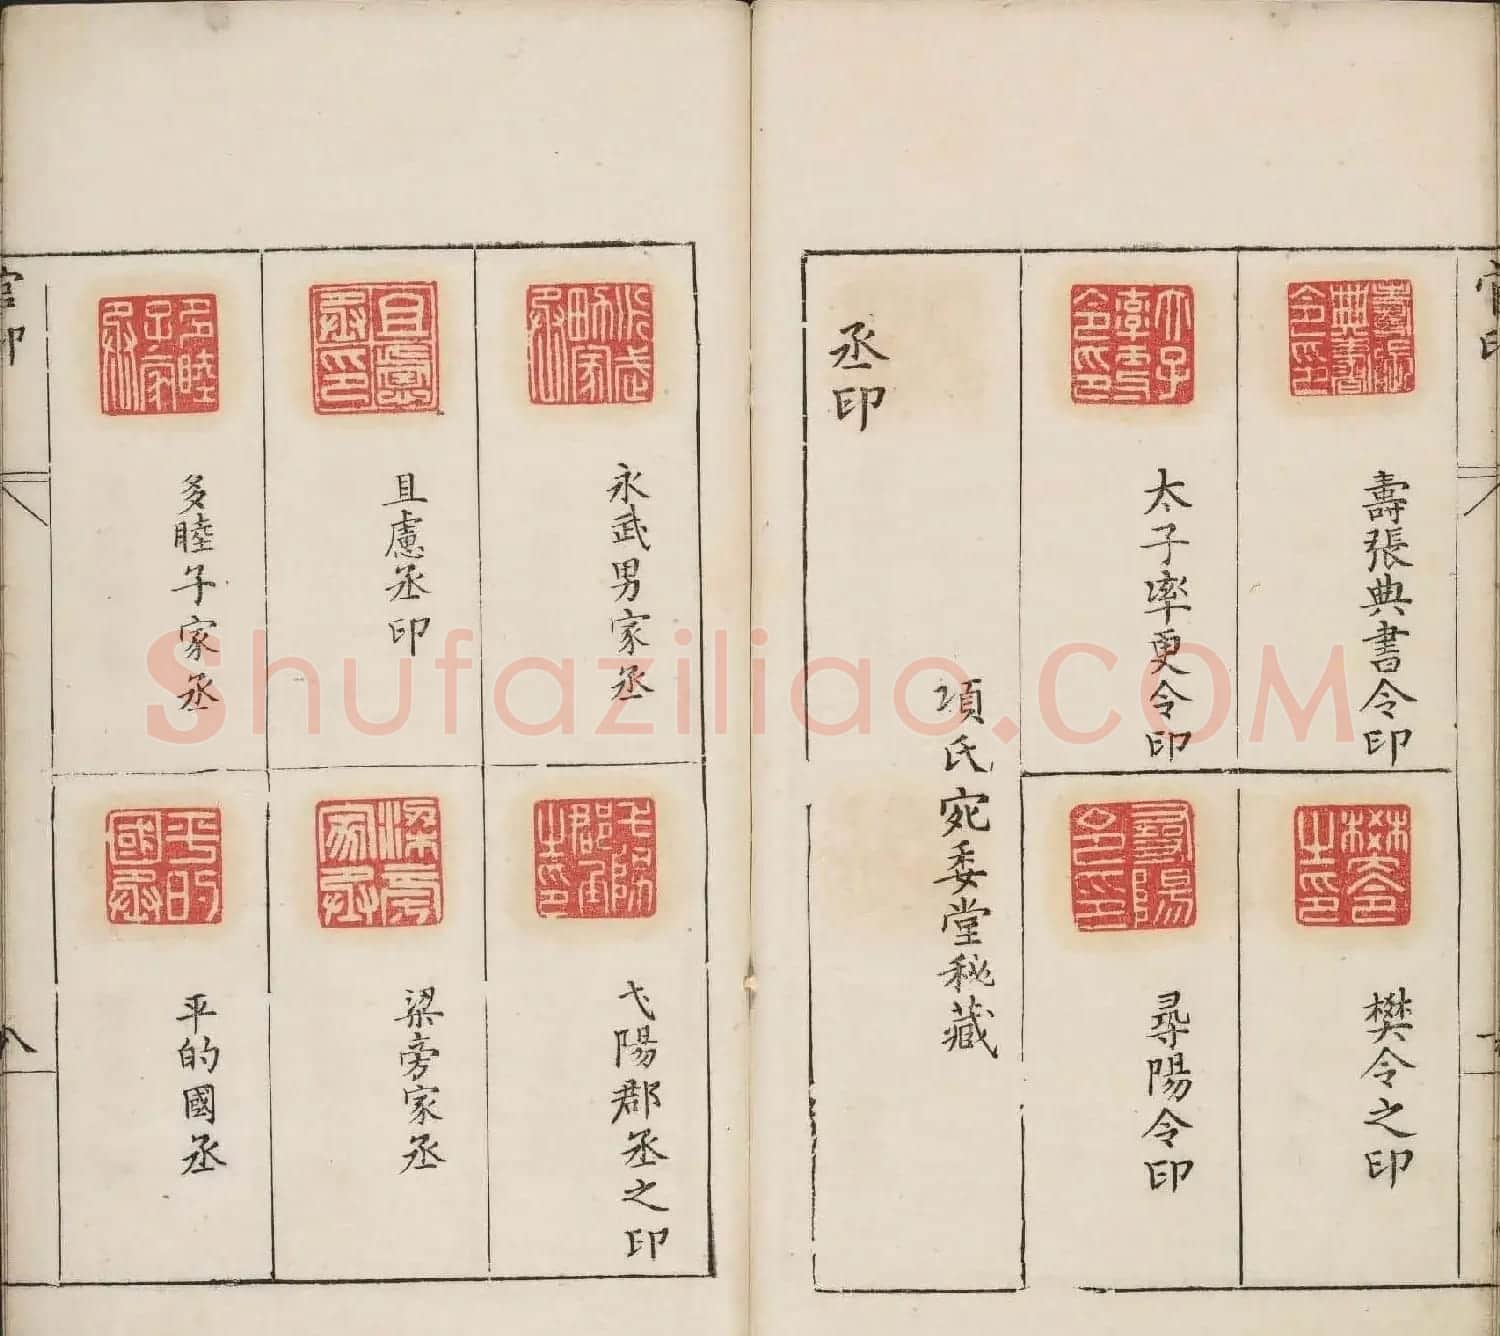 官印
壽張典書令印
樊令之印
太子率更令印
尋陽令印
項氏宛委堂秘藏
丞印
永武男家丞
弋陽郡丞之印
且慮丞印
梁旁家丞
多睦子家丞
平的國丞
官印
八
Shufaziliao.COM